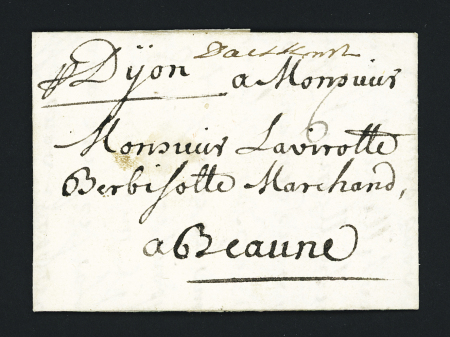 pr Dÿon
a Monsieur
Monsieur Lavirotte
Berbisotte Marchand,
a Beaune